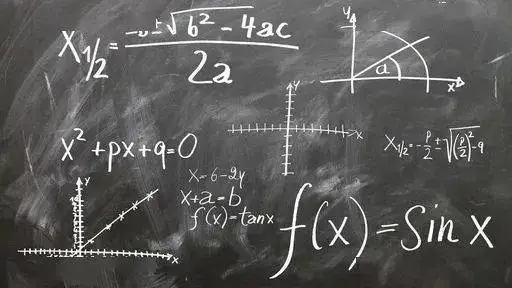 X₁/₂ = -b ± √(b² - 4ac) / 2a
y
a
x
y
x
x² + px + q = 0
X₁/₂ = -p/2 ± √((p/2)² - q)
x = 6 - 2y
x + a = b
f(x) = tan x
y
x
f(x) = Sin x